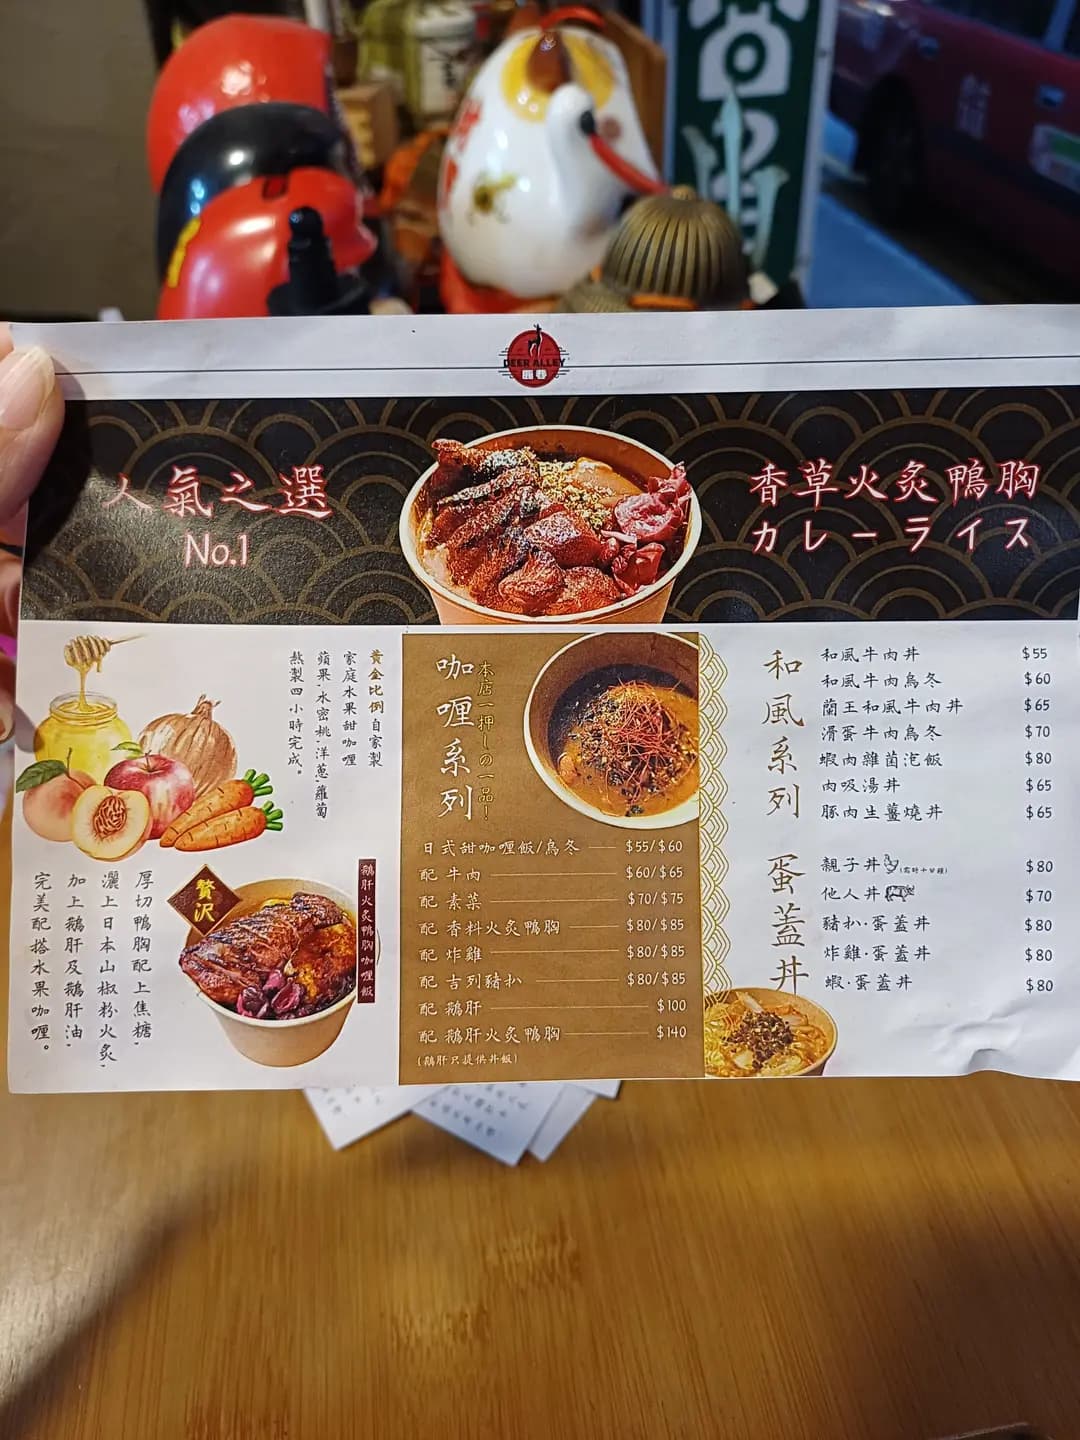 DEER ALLEY
鹿巷
人氣之選
No.1
香草火炙鴨胸
カレーライス
黃金比例自家製
家庭水果甜咖喱
蘋果·水密桃·洋蔥·蘿蔔
熬製四小時完成。
贅沢
鵝肝火炙鴨胸咖喱飯
厚切鴨胸配上焦糖,
灑上日本山椒粉火炙,
加上鵝肝及鵝肝油,
完美配搭水果咖喱。
咖喱系列
本店一押しの一品!
日式甜咖喱飯/烏冬 $55/$60
配 牛肉 $60/$65
配 素菜 $70/$75
配 香料火炙鴨胸 $80/$85
配 炸雞 $80/$85
配 吉列豬扒 $80/$85
配 鵝肝 $100
配 鵝肝火炙鴨胸 $140
(鵝肝只提供丼飯)
和風系列
和風牛肉丼 $55
和風牛肉烏冬 $60
蘭王和風牛肉丼 $65
滑蛋牛肉烏冬 $70
蝦肉雜菌泡飯 $80
肉吸湯丼 $65
豚肉生薑燒丼 $65
蛋蓋丼
親子丼 (需時十分鐘) $80
他人丼 $70
豬扒·蛋蓋丼 $80
炸雞·蛋蓋丼 $80
蝦·蛋蓋丼 $80